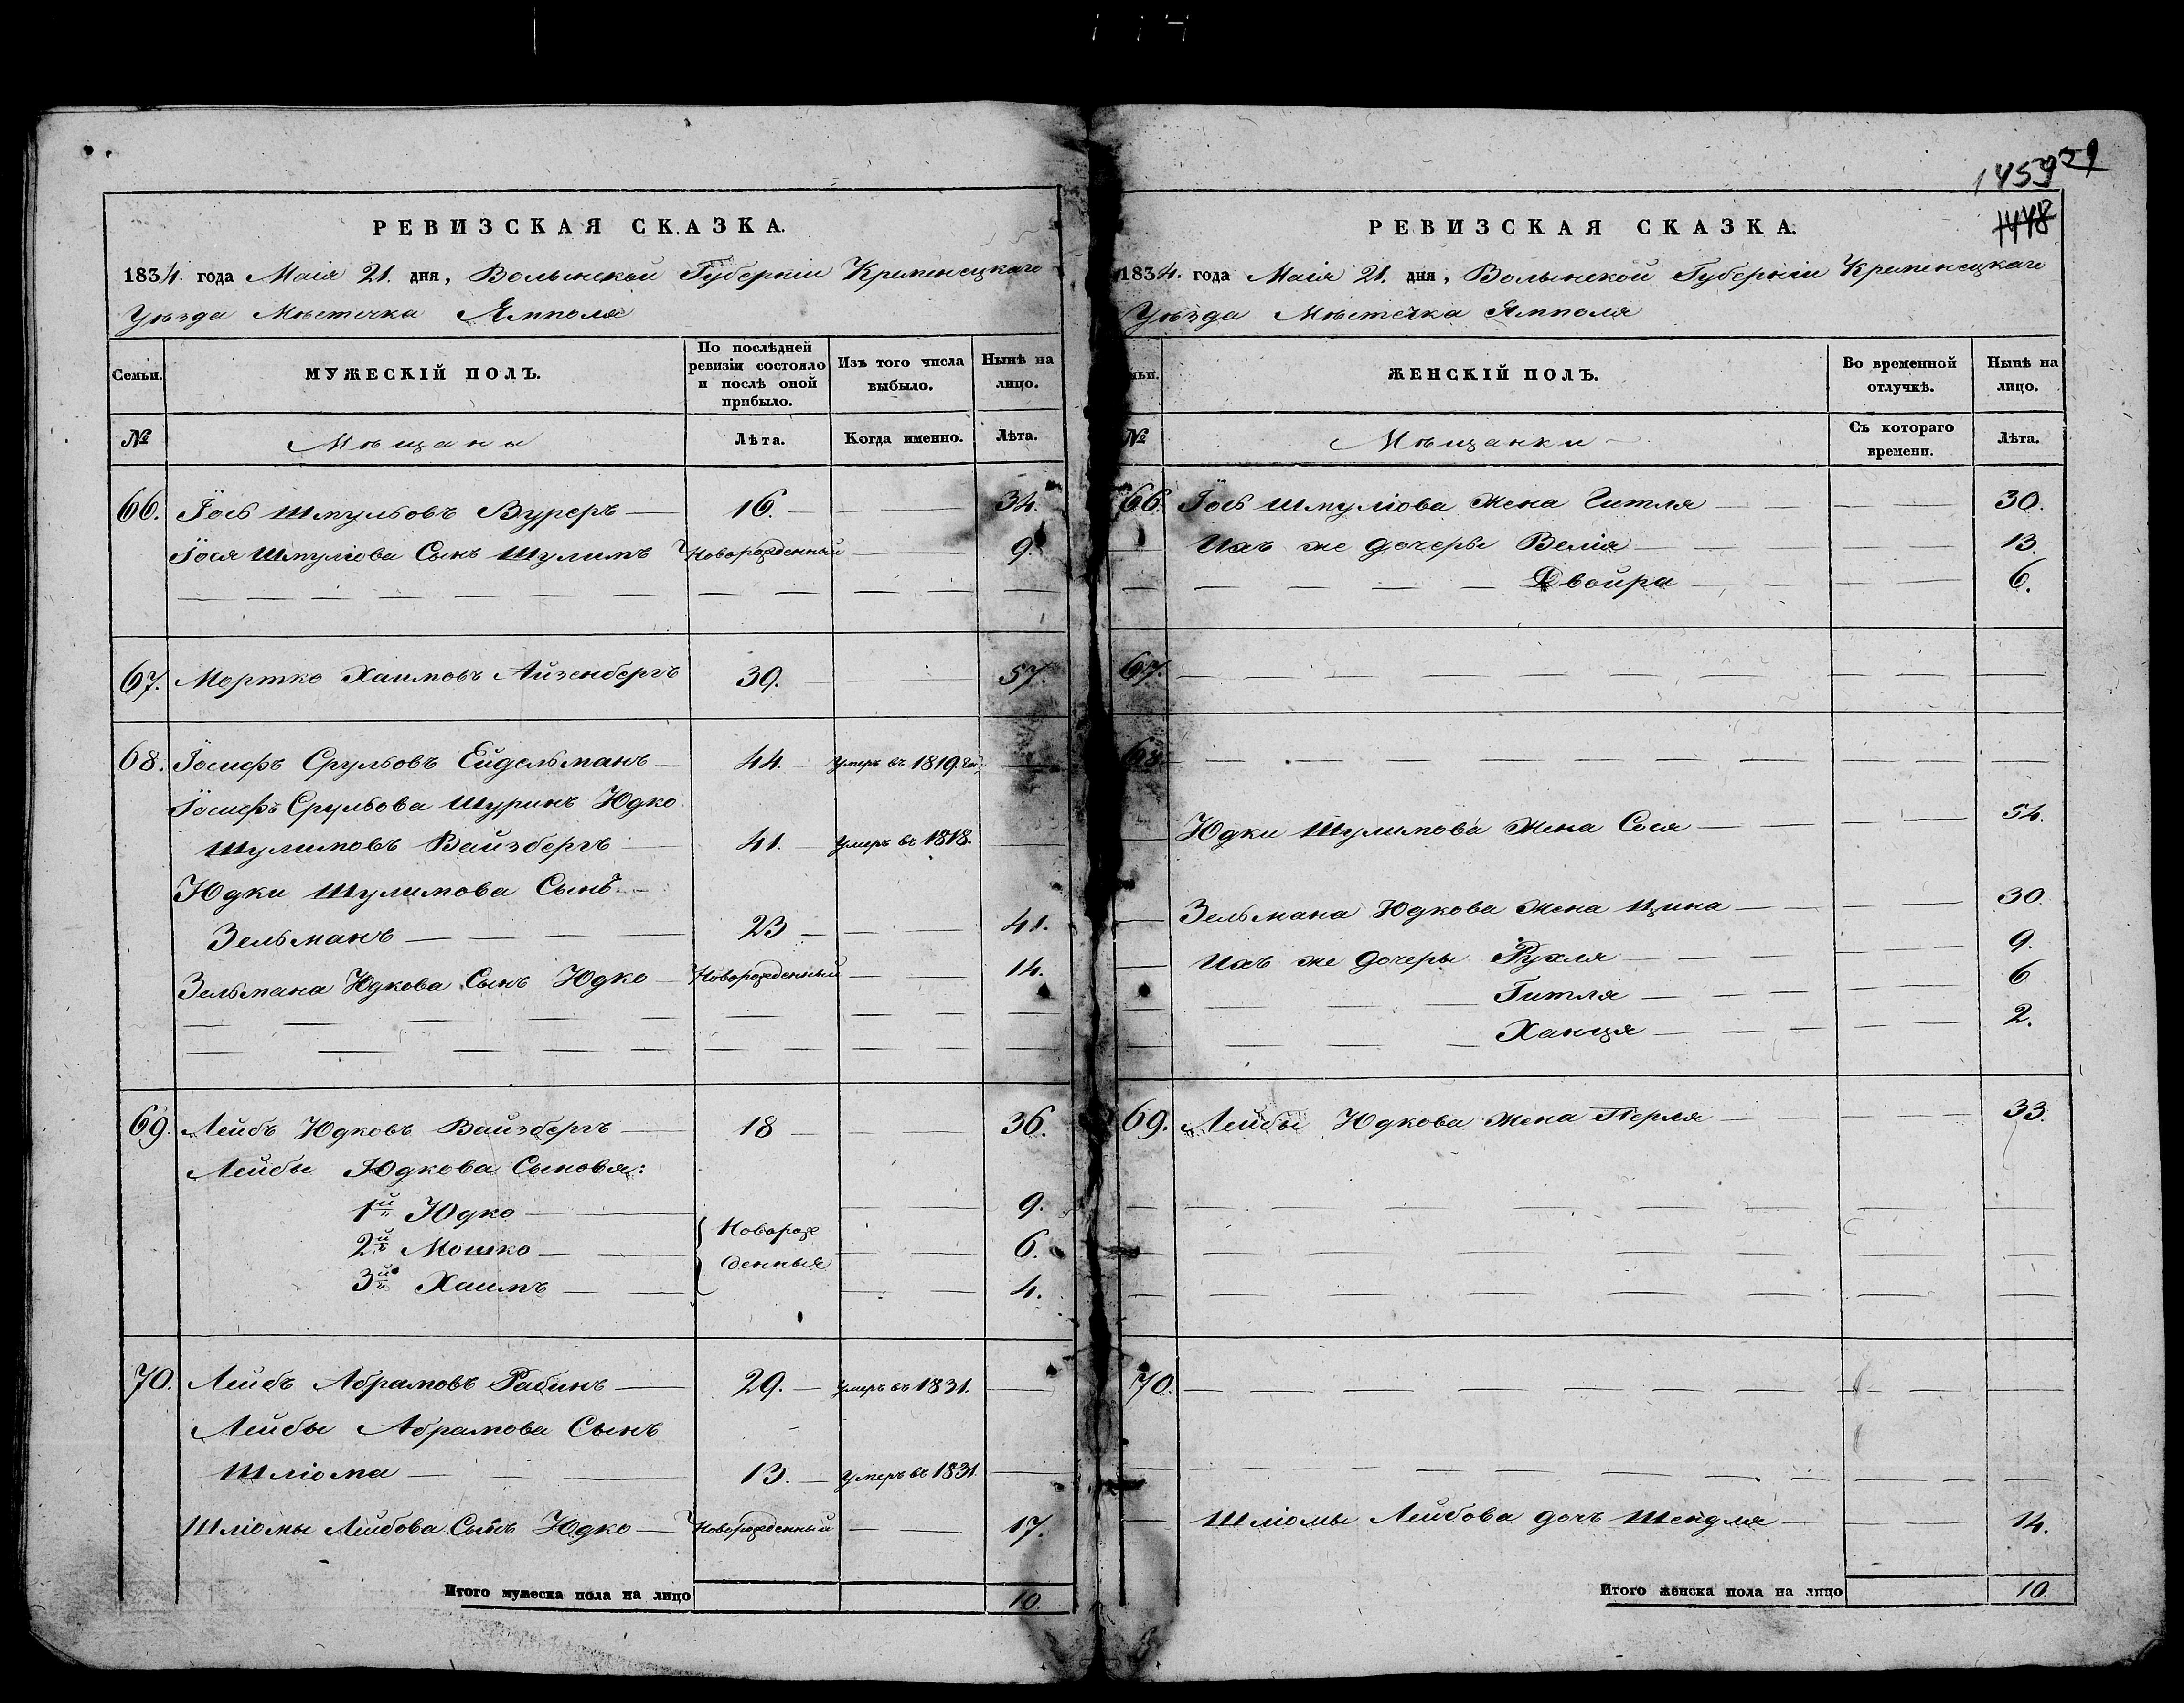 РЕВИЗСКАЯ СКАЗКА.
1834. года Маія 21. дня, Волынской Губерніи Кременецкаго
Уѣзда Мѣстечка Ямполя
Семьи.
МУЖЕСКІЙ ПОЛЪ.
По послѣдней ревизіи состояло и послѣ оной прибыло.
Изъ того числа выбыло.
Нынѣ на лицо.
№
Мѣщане
Лѣта.
Когда именно.
Лѣта.
66. Іось Шмульовъ Вуреръ 16. 34.
Іося Шмуліова Сынъ Шулимъ Новорожденный 9.
67. Мортко Хаимовъ Айзенбергъ 39. 57.
68. Іосифъ Срульовъ Ейдельманъ 44. Умеръ въ 1819. год.
Іосифъ Срульова Шуринъ Юдко
Шулимовъ Вайзбергъ 41. Умеръ въ 1818.
Юдки Шулимова Сынъ
Зельманъ 23 41.
Зельмана Юдкова Сынъ Юдко Новорожденный 14.
69. Лейбъ Юдковъ Вайзбергъ 18 36.
Лейбы Юдкова Сыновья:
1й Юдко 9.
2й Мошко Новорож 6.
3й Хаимъ денныя 4.
70. Лейбъ Абрамовъ Рабинъ 29. Умеръ въ 1831.
Лейбы Абрамова Сынъ
Шліома 13. Умеръ въ 1831.
Шліомы Лейбова Сынъ Юдко Новорожденный 17.
Итого мужеска пола на лицо 10.
1459 29
1448
РЕВИЗСКАЯ СКАЗКА.
1834. года Маія 21. дня, Волынской Губерніи Кременецкаго
Уѣзда Мѣстечка Ямполя
ЖЕНСКІЙ ПОЛЪ.
Во временной отлучкѣ.
Нынѣ на лицо.
№
Мѣщанки
Съ котораго времени.
Лѣта.
66. Іось Шмуліова жена Гитля 30.
Ихъ же дочеры Велія 13.
Двойра 6.
67.
68.
Юдки Шулимова жена Сося 54.
Зельмана Юдкова жена Цина 30.
Ихъ же дочеры Рухля 9.
Гитля 6
Ханця 2.
69. Лейбы Юдкова жена Перля 33.
70.
Шліомы Лейбова дочъ Шендля 14.
Итого женска пола на лицо 10.